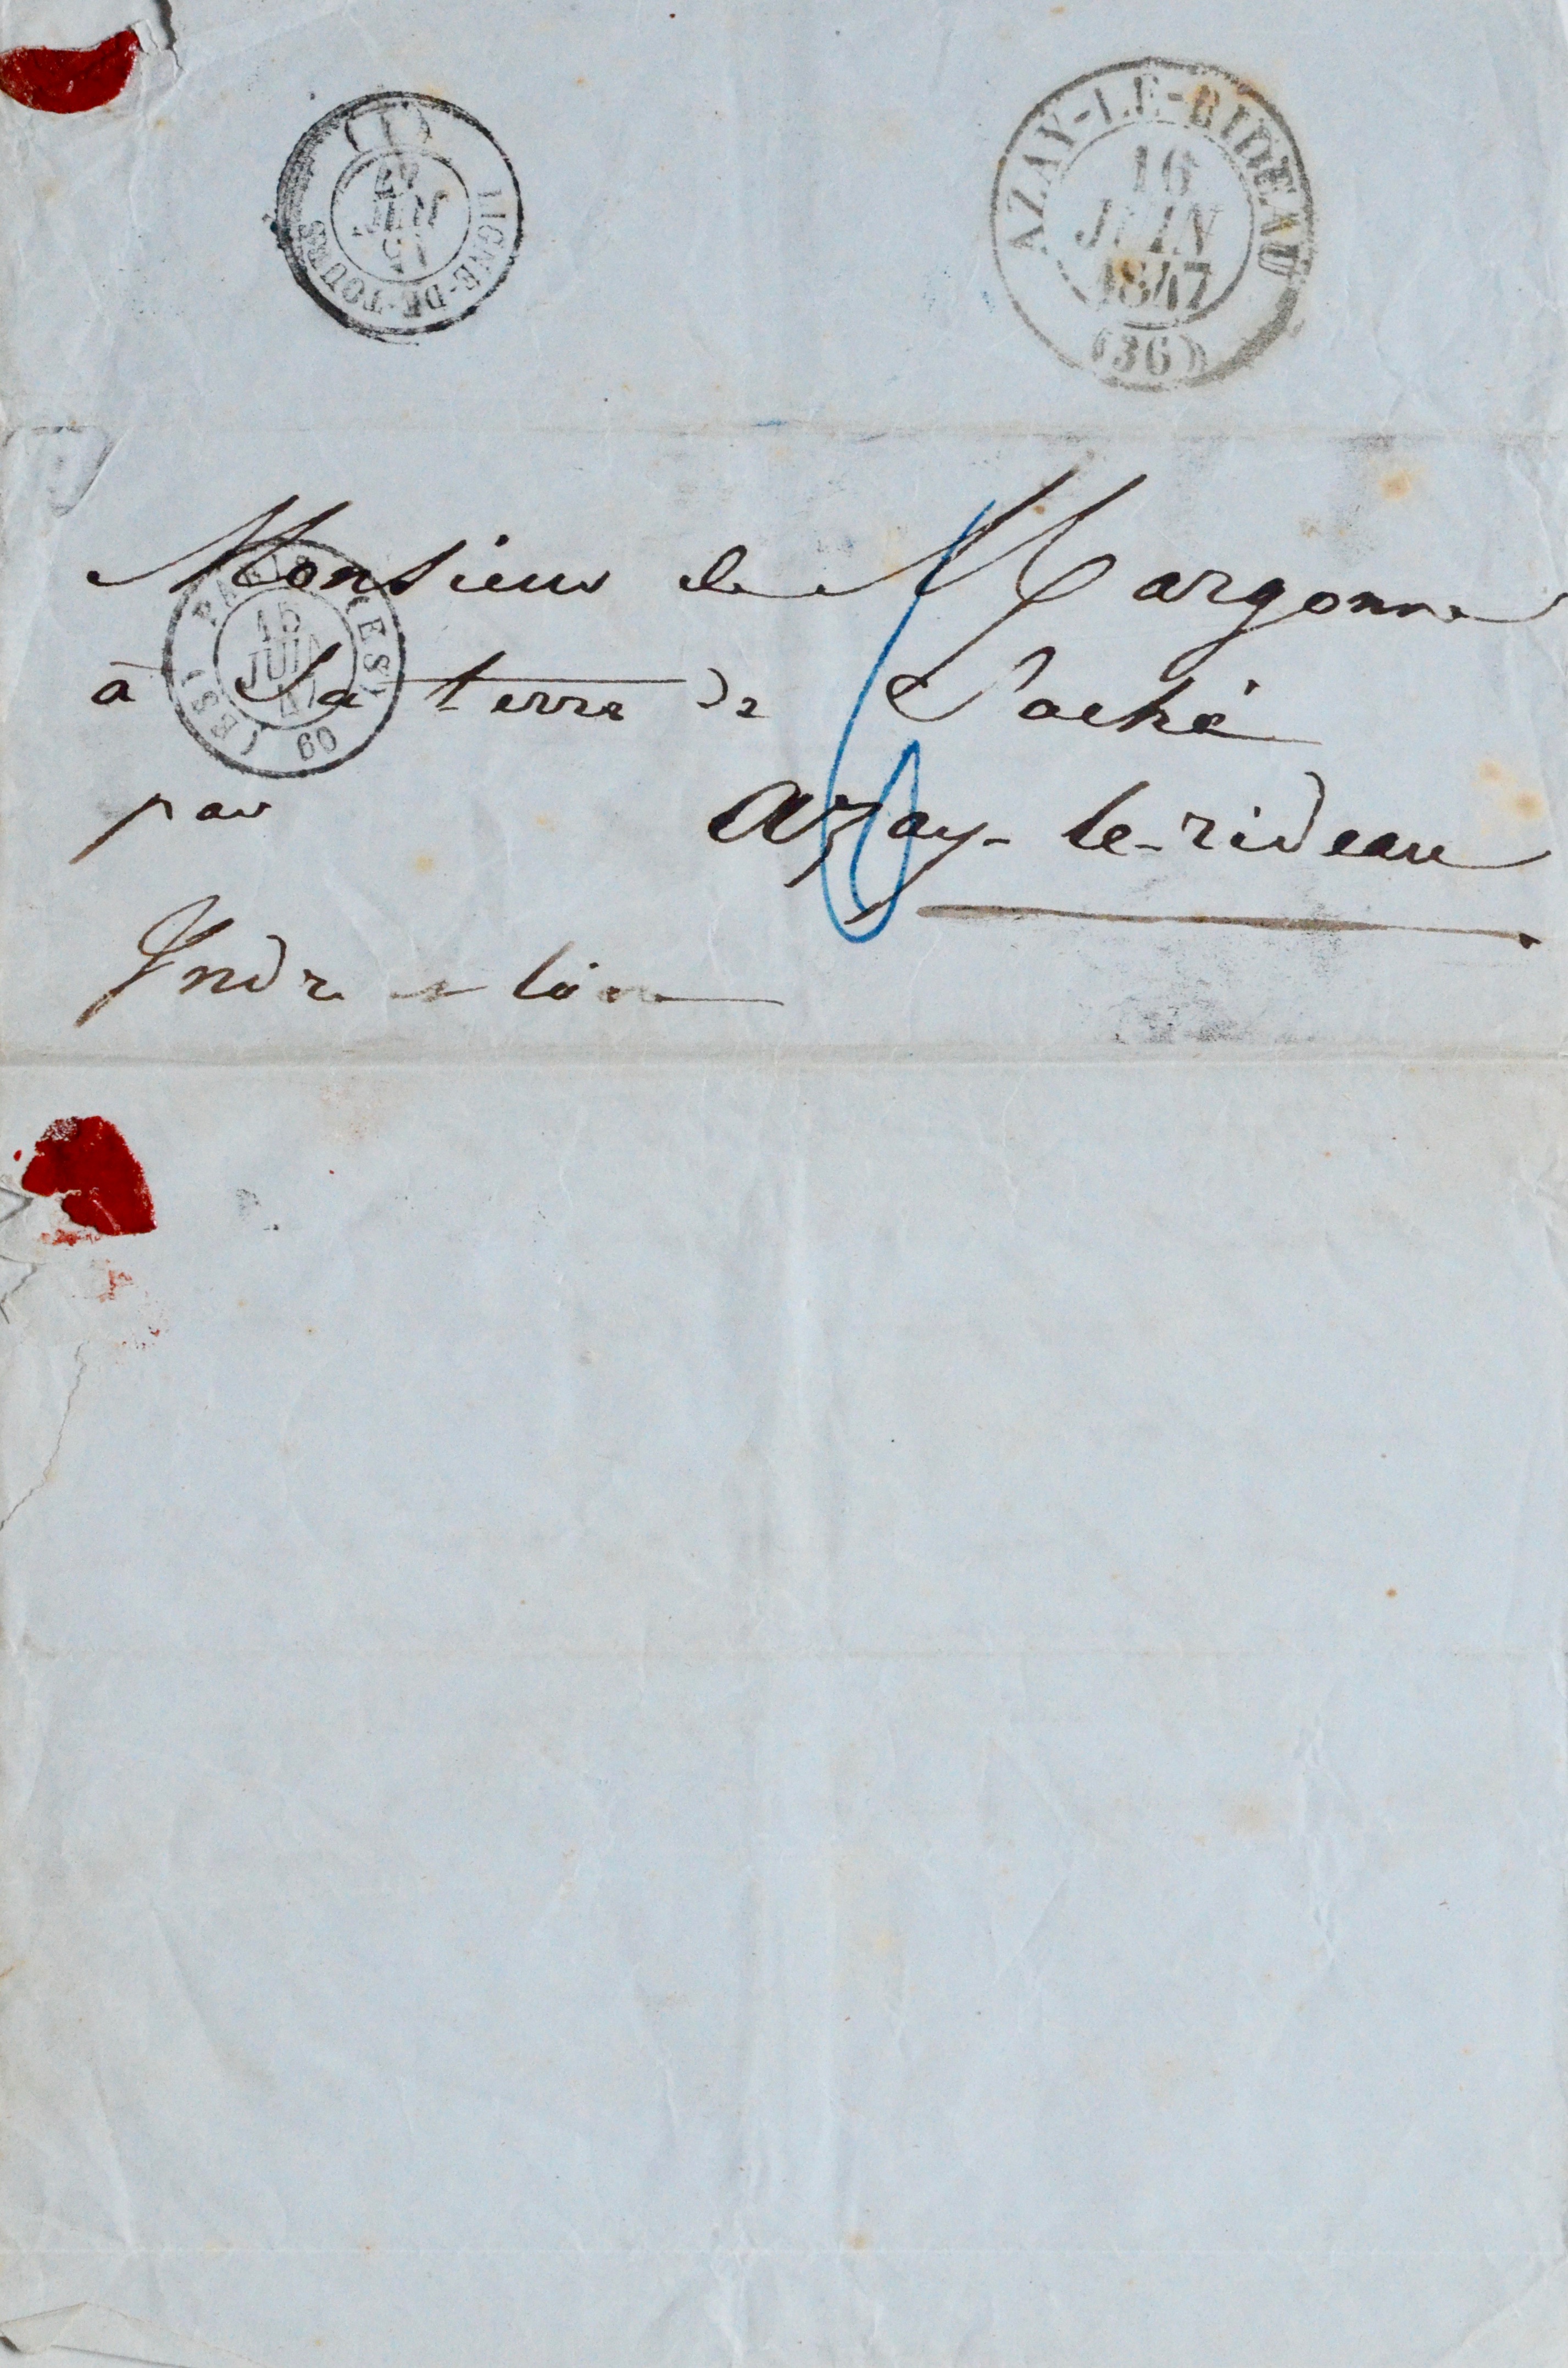 (1)
LIGNE-DE-TOURS
15
JUIN
47
AZAY-LE-RIDEAU
16
JUIN
1847
(36)
Monsieur de Margonne
à Sa terre de Saché
par azay-le-rideau
Indre et loire
PARIS
(ES)
15
JUIN
47
60
6